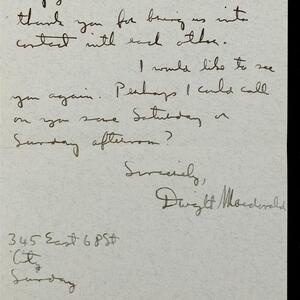 thank you for bring us into
contact with each other.
I would like to see
you again. Perhaps I could call
on you some Saturday or
Sunday afternoon?
Sincerely,
Dwight Macdonald
345 East 68 St
City
Sunday